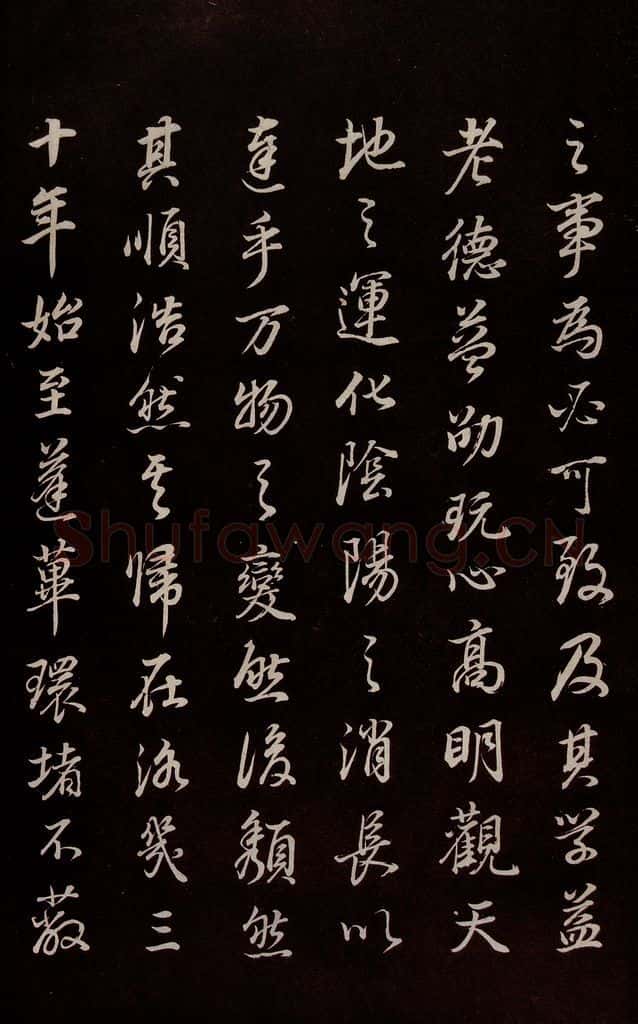 之事為必可致及其學益
老德益劭玩心高明觀天
地之運化陰陽之消長以
達乎万物之變然後頹然
其順浩然其歸在洛幾三
十年始至蓬蓽環堵不蔽
Shufawang.CN